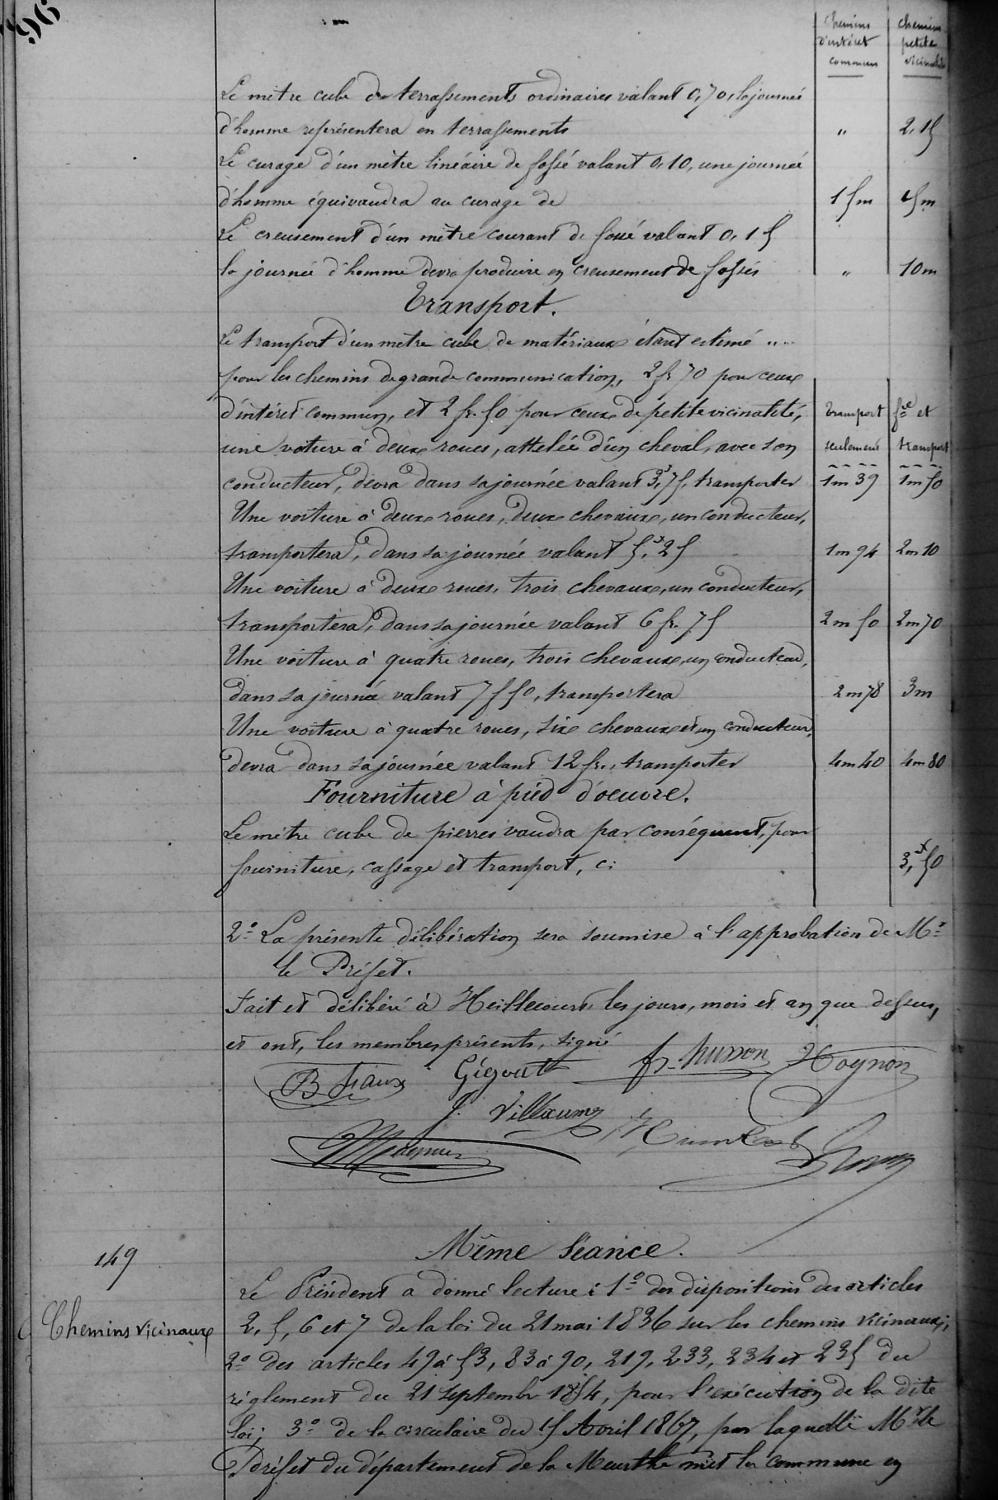 96
Chemins d'intéret commun
Chemins petite vicinalité
Le mètre cube de terrassements ordinaires valant 0,70, la journée
d'homme représentera en terrassements " 2,15
Le curage d'un mètre linéaire de fossé valant 0,10, une journée
d'homme équivaudra au curage de 15m 15m
Le creusement d'un mètre courant de fossé valant 0,15
la journée d'homme devra produire en creusement de fossés " 10m
Transport.
Le transport d'un mètre cube de matériaux étant estimé "
pour les chemins de grande communication, 2 fr 70 pour ceux
d'intéret commun, et 2 fr. 50 pour ceux de petite vicinalité, Transport f.re et
une voiture à deux roues, attelée d'un cheval, avec son seulement transport
conducteur, devra dans sa journée valant 3,f75, transporter 1m 39 1m 50
Une voiture à deux roues, deux chevaux, un conducteur,
transportera, dans sa journée valant 5,f25 1m 94 2m 10
Une voiture à deux roues, trois chevaux, un conducteur,
transportera, dans sa journée valant 6 fr. 75 2m 50 2m 70
Une voiture à quatre roues, trois chevaux, un conducteur,
dans sa journée valant 7f50, transportera 2m 78 3m
Une voiture à quatre roues, six chevaux et un conducteur,
devra dans sa journée valant 12 fr., transporter 4m 40 4m 80
Fourniture à pied d'oeuvre.
Le mètre cube de pierres vaudra par conséquent, pour
fourniture, cassage et transport, ci 3,f50
2.° La présente délibération sera soumise à l'approbation de M.r
le Préfet.
Fait et délibéré à Heillecourt les jours, mois et an que dessus,
et ont, les membres présents, signé
Gégout Fr. Husson Hoynon
J. Villaume Humbert
149
Même Séance.
Le Président a donné lecture : 1.° des dispositions des articles
Chemins Vicinaux
2, 5, 6 et 7 de la loi du 21 mai 1836 sur les chemins vicinaux;
2.° des articles 49 à 53, 83 à 90, 219, 233, 234 et 235 du
règlement du 21 septembre 1854, pour l'exécution de la dite
loi; 3.° de la circulaire du 15 Avril 1867, par laquelle M.r le
Préfet du département de la Meurthe met la commune en